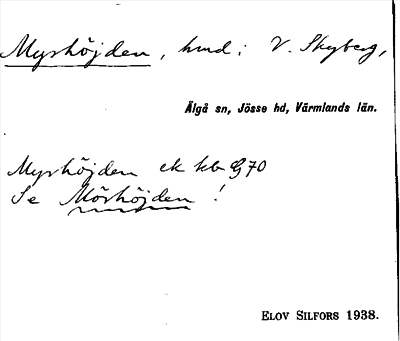 Myrhöjden, hmd i V. Skyberg,
Älgå sn, Jösse hd, Värmlands län.
Myrhöjden ek kb G70
Se Mörhöjden !
ELOV SILFORS 1938.